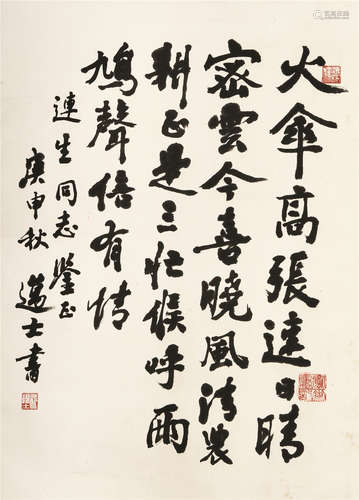 火傘高張連日晴
密雲今喜曉風清農
耕正是三忙候呼雨
鳩聲倍有情
連生同志鑒正
庚申秋 邁士書